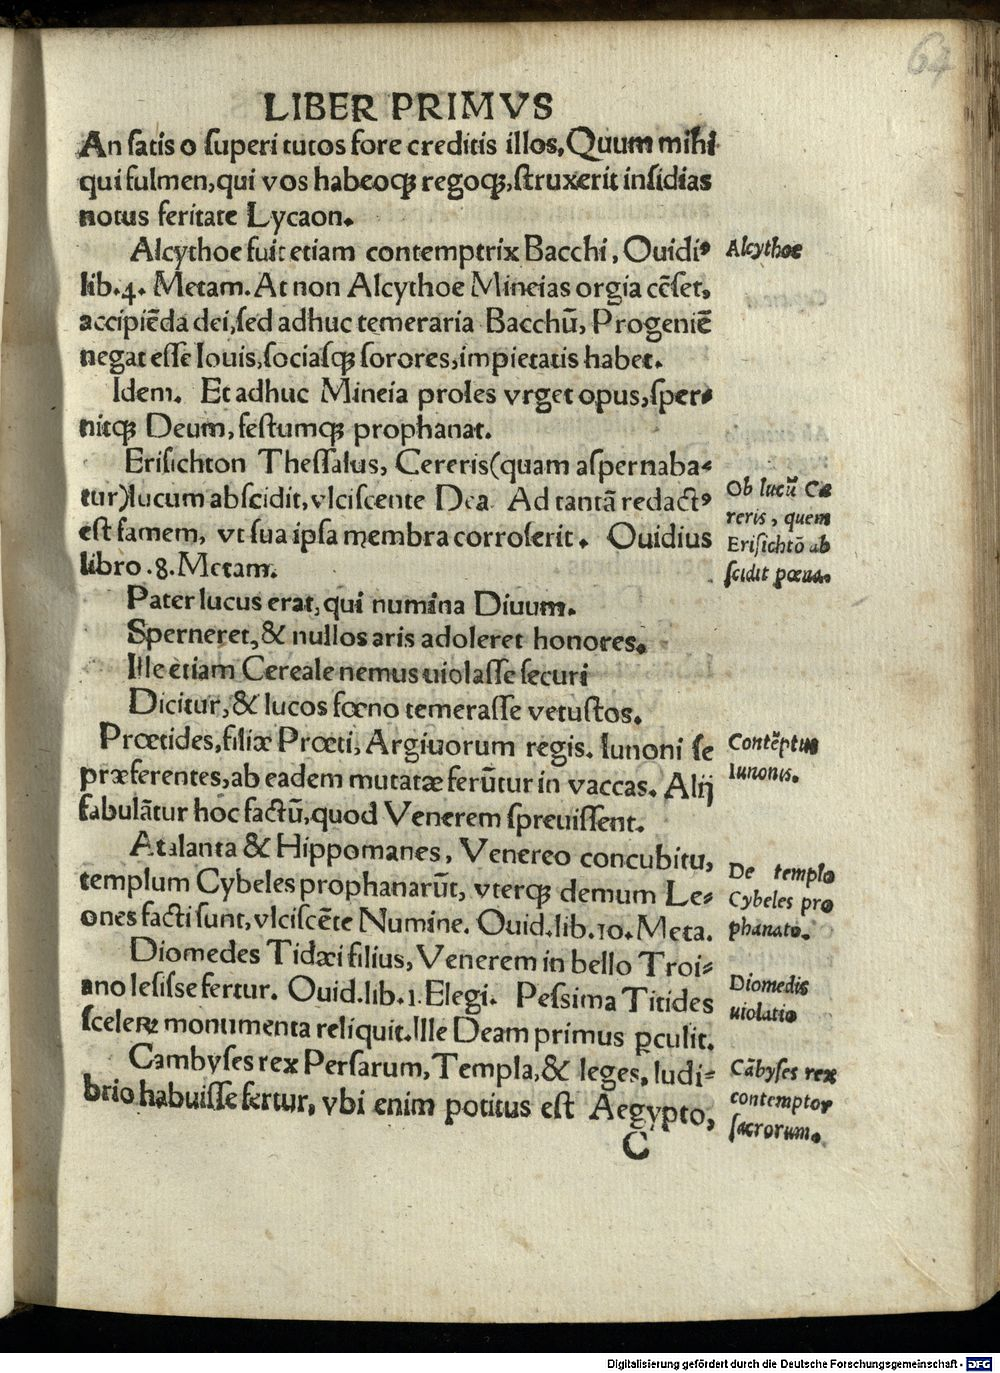 64
LIBER PRIMVS
An satis o superi tutos fore creditis illos, Quum mihi
qui fulmen, qui vos habeoqꝫ regoqꝫ, struxerit insidias
notus feritate Lycaon.
Alcythoe fuit etiam contemptrix Bacchi, Ouidiꝰ
lib. 4. Metam. At non Alcythoe Mineias orgia cēset,
accipiēda dei, sed adhuc temeraria Bacchū, Progeniē
negat esse Iouis, sociasqꝫ sorores, impietatis habet.
Idem. Et adhuc Mineia proles vrget opus, sper⸗
nitqꝫ Deum, festumqꝫ prophanat.
Erisichton Thessalus, Cereris (quam aspernaba⸗
tur) lucum abscidit, vlciscente Dea. Ad tantā redactꝰ
est famem, vt sua ipsa membra corroserit. Ouidius
libro .8. Metam.
Pater lucus erat, qui numina Diuum.
Sperneret, & nullos aris adoleret honores.
Ille etiam Cereale nemus uiolasse securi
Dicitur, & lucos fœno temerasse vetustos.
Prœtides, filiæ Prœti, Argiuorum regis. Iunoni se
præferentes, ab eadem mutatæ ferūtur in vaccas. Alij
fabulātur hoc factū, quod Venerem spreuissent.
Atalanta & Hippomanes, Venereo concubitu,
templum Cybeles prophanarūt, vterqꝫ demum Le⸗
ones facti sunt, vlciscēte Numine. Ouid. lib. 10. Meta.
Diomedes Tidæi filius, Venerem in bello Troi⸗
ano lesisse fertur. Ouid. lib. 1. Elegi. Pessima Titides
sceleꝝ monumenta reliquit. Ille Deam primus ꝑculit.
Cambyses rex Persarum, Templa, & leges, ludi⸗
brio habuisse fertur, vbi enim potitus est Aegypto,
C
Alcythoe
Ob lucū Ce
reris, quem
Erisichtō ab
scidit pœna.
Contēptus
Iunonis.
De templo
Cybeles pro
phanato.
Diomedis
uiolatio
Cābyses rex
contemptor
sacrorum.
Digitalisierung gefördert durch die Deutsche Forschungsgemeinschaft - DFG